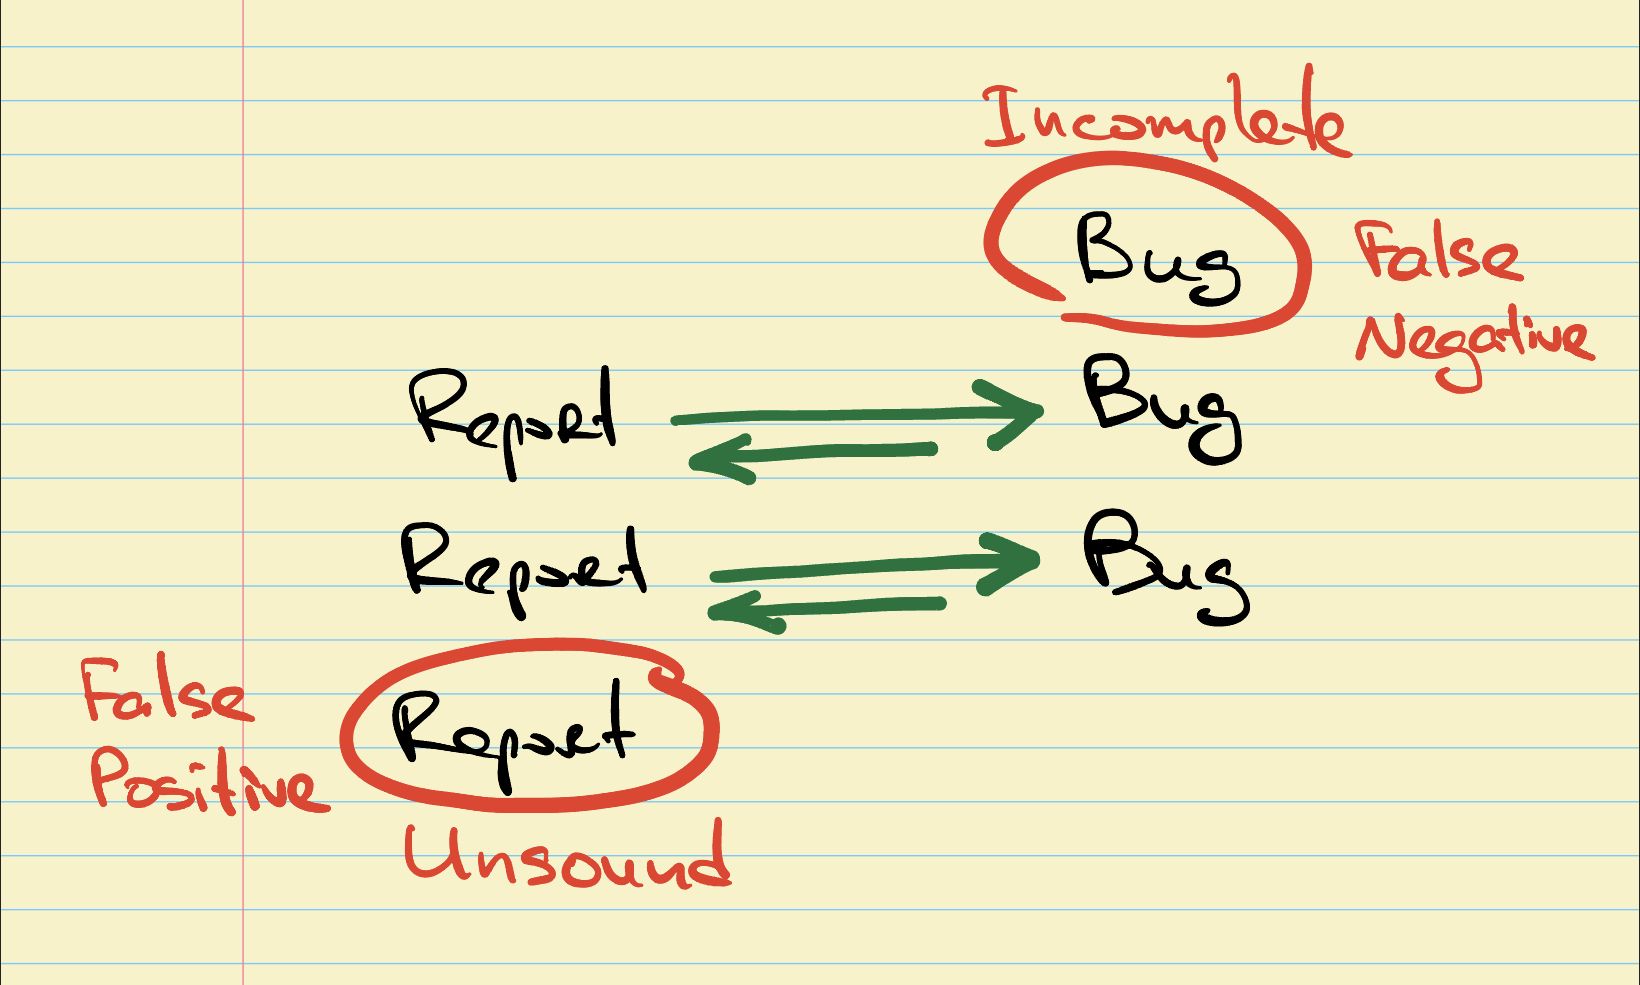 Incomplete
Bug
False
Negative
Report
Bug
Report
Bug
False
Positive
Report
Unsound